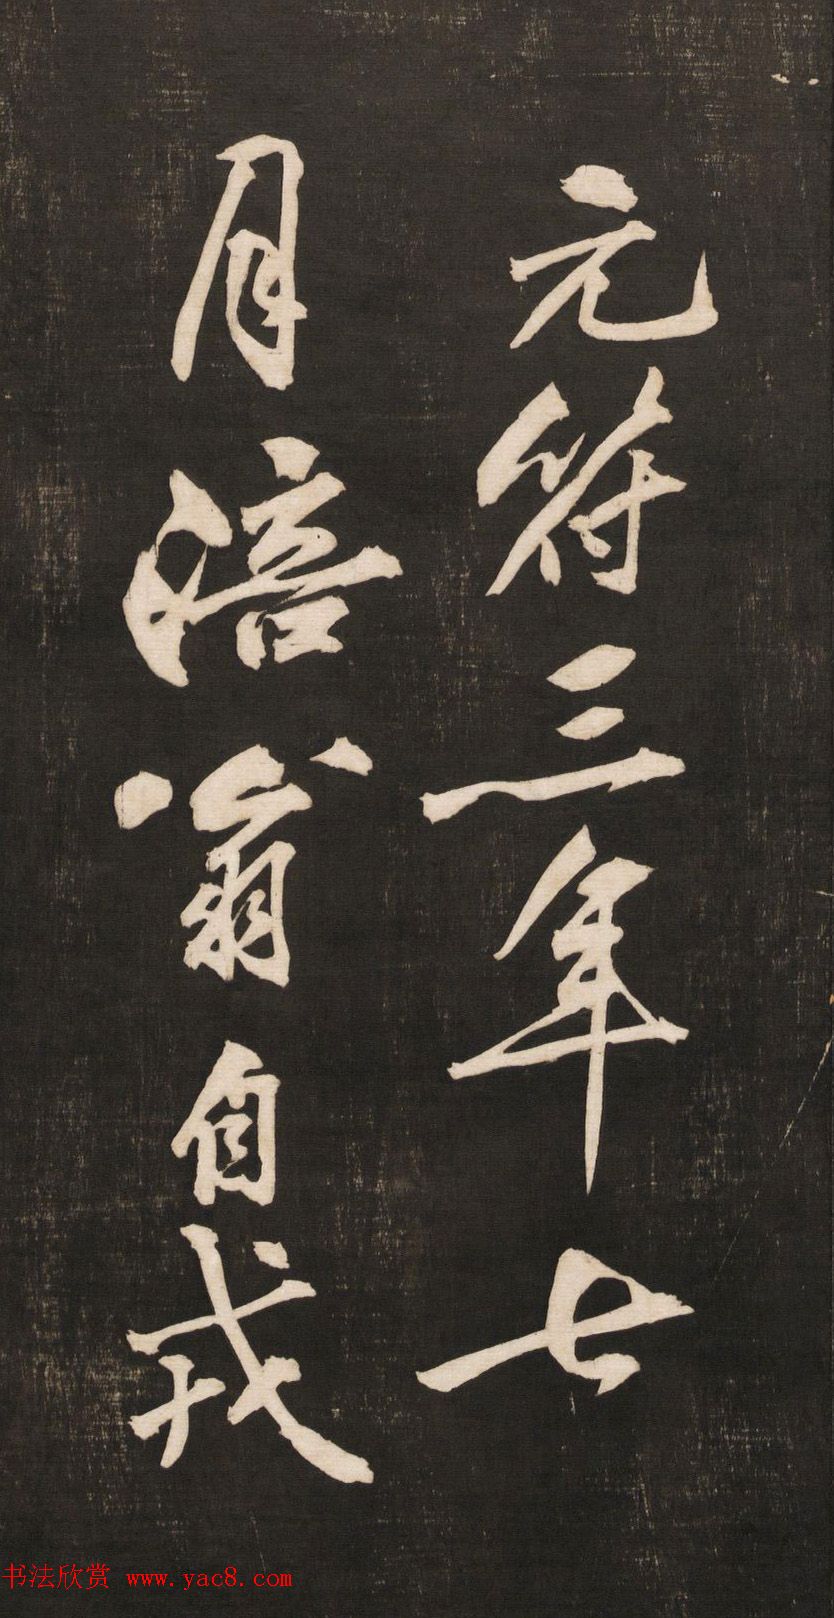 元符三年七
月涪翁自戎
书法欣赏 www.yac8.com